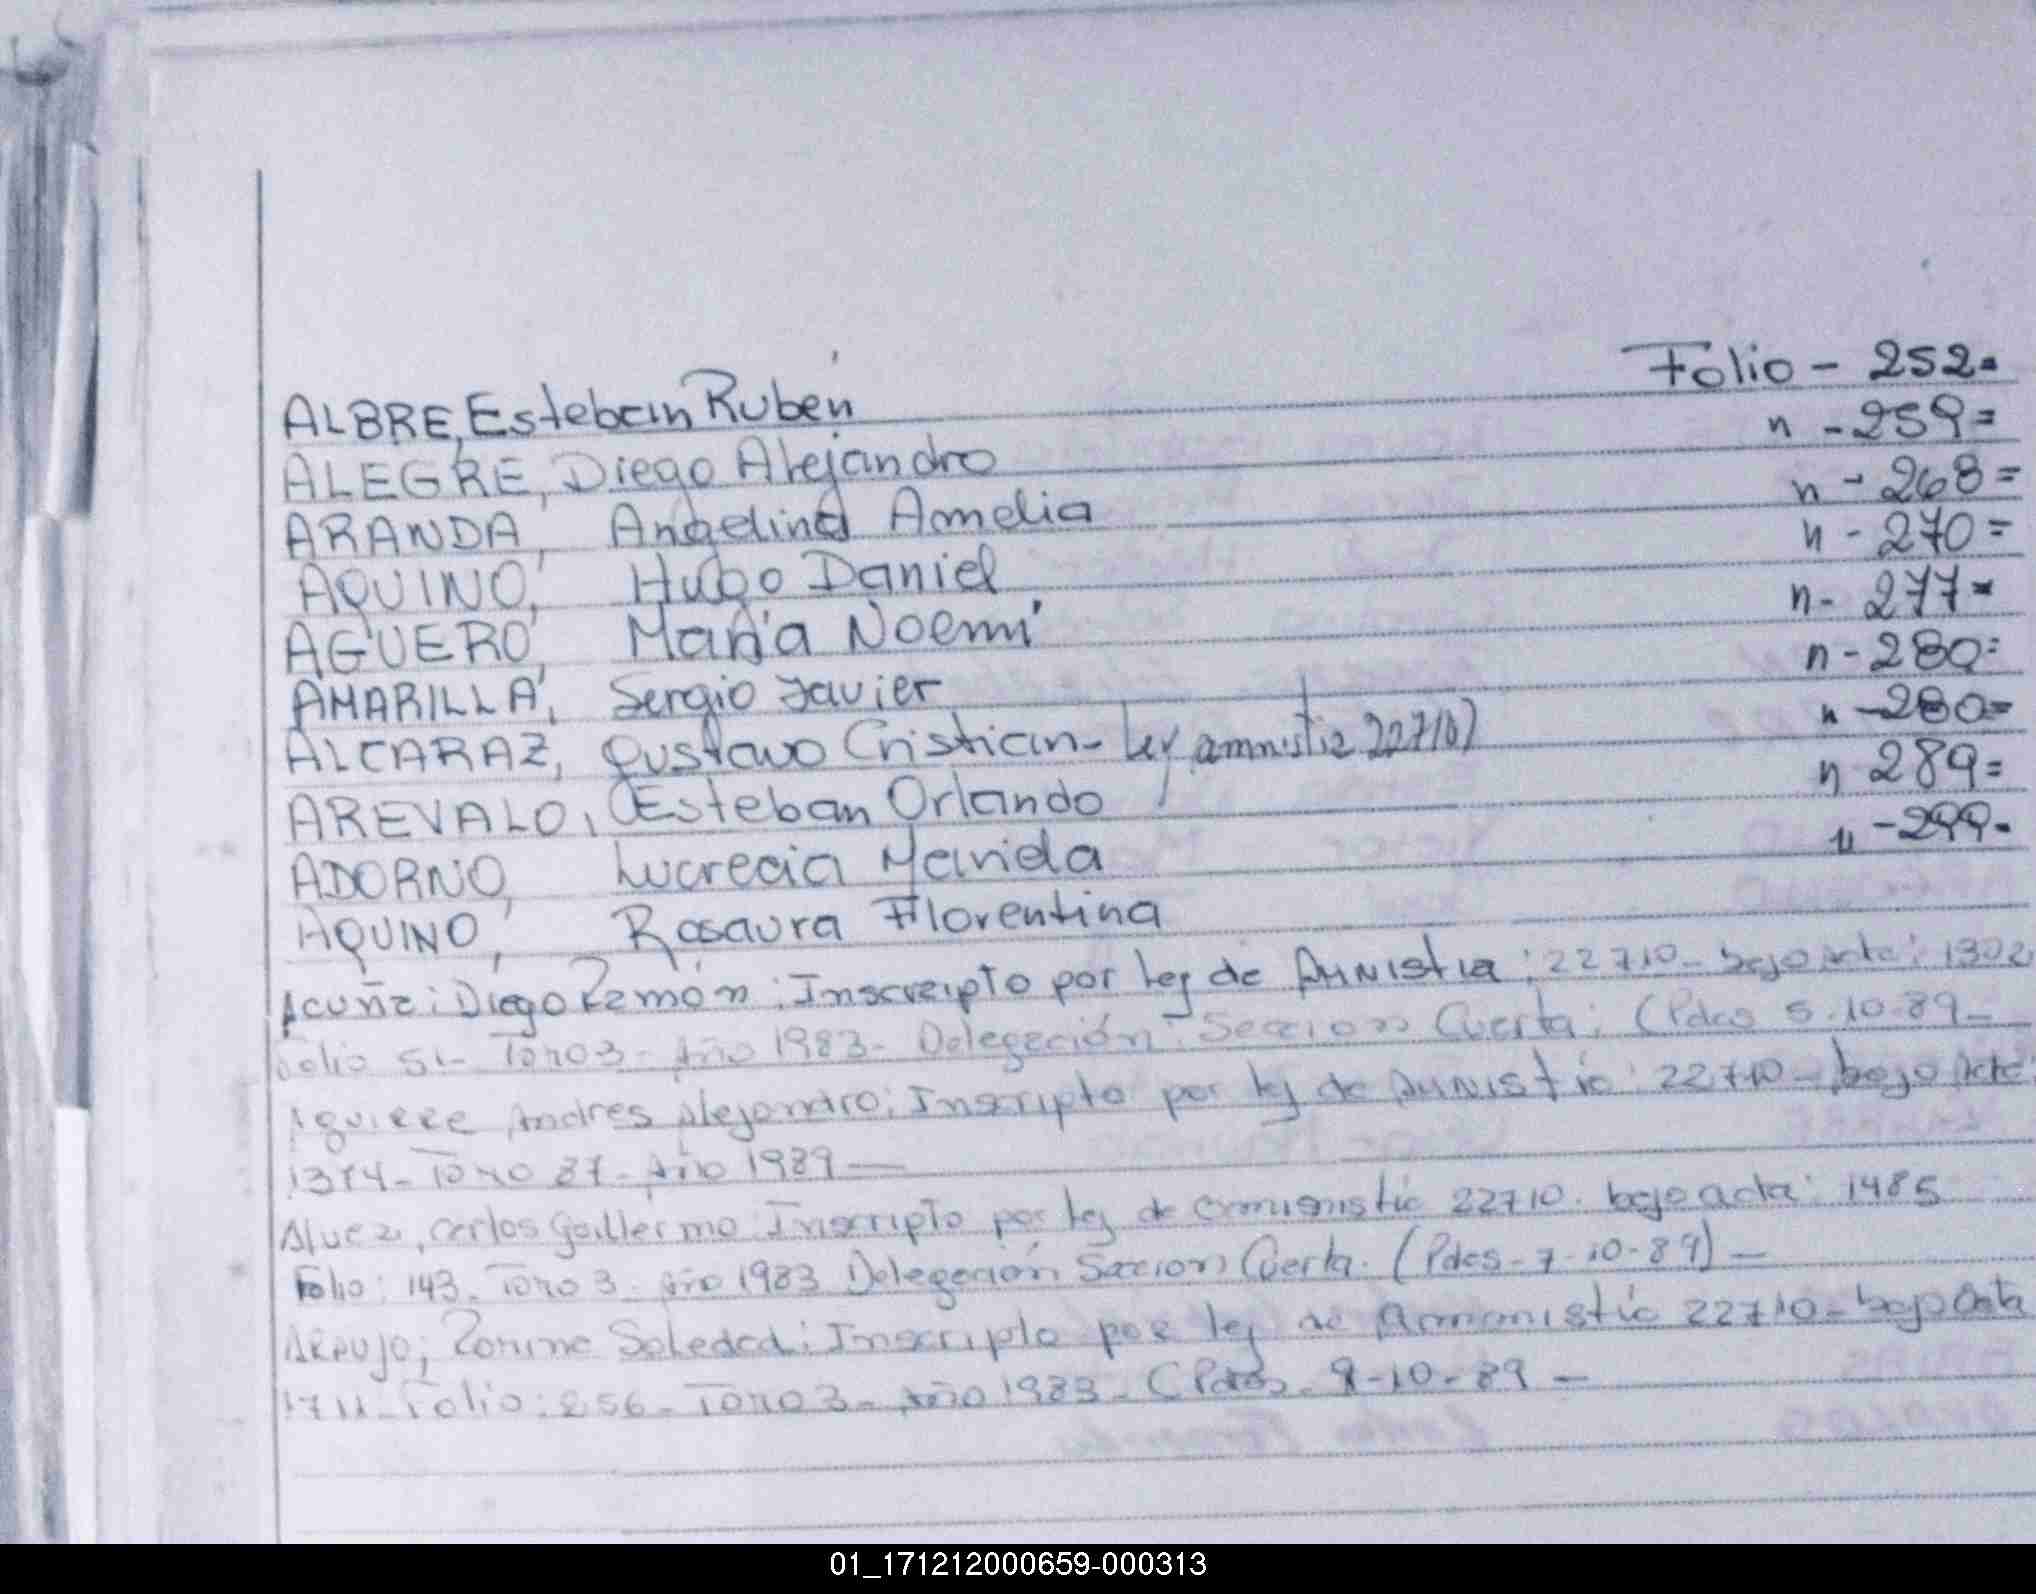 ALBRE, Esteban Rubén Folio - 252=
ALEGRE, Diego Alejandro n - 259=
ARANDA, Angelina Amelia n - 268=
AQUINO, Hugo Daniel n - 270=
AGÜERO, María Noemí n - 277=
AMARILLA, Sergio Javier n - 280=
ALCARAZ, Gustavo Cristian - Ley amnistia 22710) n - 280=
AREVALO, Esteban Orlando n 289=
ADORNO, Lucrecia Mariela n - 299-
AQUINO, Rosaura Florentina
Acuña; Diego Ramón; Inscripto por Ley de Amnistia: 22710- bajo acta: 1302
Folio 51- Tomo 3- Año 1983- Delegación: Seccion Cuarta: (Pdas 5-10-89-
Aguirre Andres Alejandro; Inscripto por Ley de Amnistia: 22710- bajo Acta:
1374- Tomo 37- Año 1989-
Carlos Guillermo Inscripto por Ley de ammnistia 22710. bajo acta: 1485
Folio: 143- Tomo 3- Año 1983 Delegación Seccion Cuarta. (Pdas-7-10-89)-
ARAUJO; Soledad; Inscripto por ley de Ammnistia 22710- bajo acta
1711- Folio: 256- Tomo 3- Año 1983- (Pdas- 9-10-89-
01_171212000659-000313